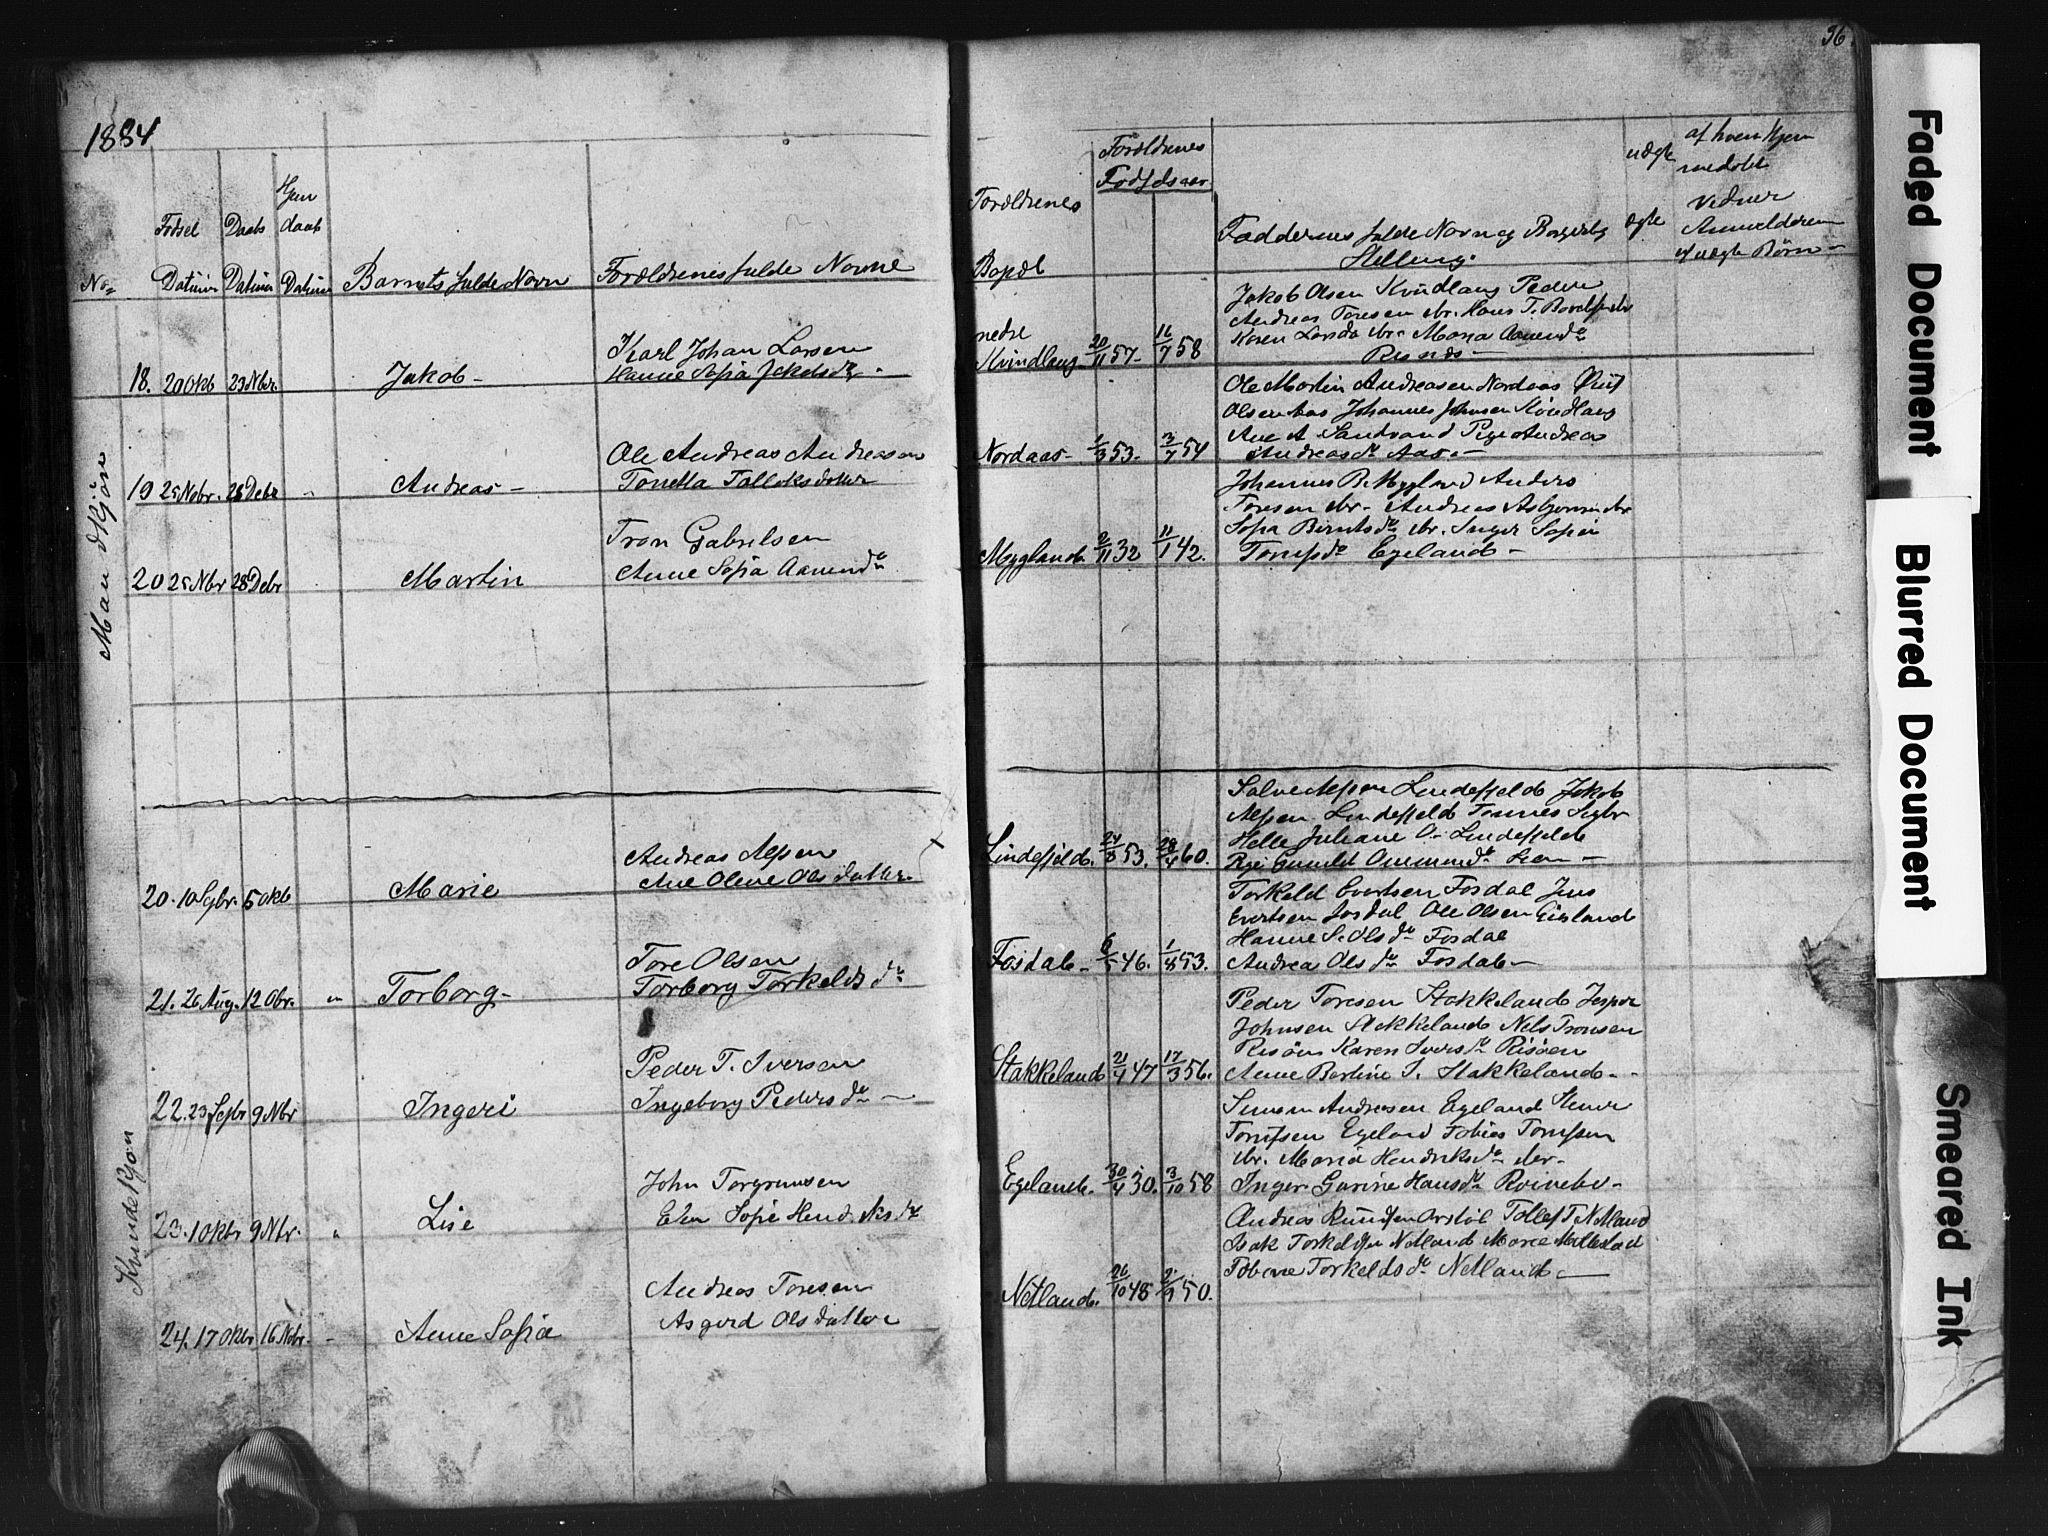 1884
36
No
Fødsel
Datum
Daabs
Datum
Hjem
daab
Datum
Barnets fulde Navn
Forældrenes fulde Navne
Forældrenes
Bopæl
Forældrenes
Fødselsaar
Faddernes fulde Navn og Borgerlig
Stilling.
uægte
ægte
af hvem Hjem
medelt
Vidner
Anmelderen
af uægte Børn
Mandkjøn
18. 20 Okb 23 Nbr. Jakob
Karl Johan Larsen
Hanne Sofia Jakobsdr
nedre
Kvindlaug 20/11 57. 16/7 58
Jakob Olsen Kvindlaug Peder
Andreas Toresen ibr. Hans T.
Karen Larsdr ibr. Maria Aanendr
19 25 Nobr. 28 Debr " Andreas
Ole Andreas Andreasen
Tonetta Tolleksdatter
Nordaas 1/3 53. 3/7 54
Ole Martin Andreasen Nordaas
Olsen Aas Johannes Johnsen Kvindlaug
Ane A. Sandvand Pige Andrea
Andreasdr Aas.
20 25 Nbr 28 Debr Martin
Tron Gabrielsen
Anne Sofia Aanendr
Mygland 2/11 32 11/1 42.
Johannes B. Mygland Anders
Toresen ibr. Andreas Asbjørnsen ibr
Sofia Berntsdr ibr. Inger Sofie
Tomasdr Egeland
Kvindekjøn
20. 10 Sebr. 5 Okb Marie
Andreas Alfsen
Ane Olene Olsdatter
Lindefjeld. 24/8 53. 28/4 60.
Salve Alfsen Lindefjeld Jakob
Alfsen Lindefjeld Tønnes Sigbr
Helle Juliane O. Lindefjeld
Gunild Ommundr
21. 26 Aug. 12 Obr. " Torborg
Tore Olsen
Torborg Torkeldsdr
Fosdal 6/5 46. 1/8 53.
Torkeld Evertsen Fosdal Jens
Evertsen Fosdal Ole Olsen Eisland
Hanne S. Olsdr Fosdal
Andrea Olsdr Fosdal
22. 23 Sebr 9 Nbr Ingeri
Peder T. Iversen
Ingeborg Pedersdr
Stakkeland 21/4 47 17/3 56.
Peder Toresen Stakkeland Jesper
Johnsen Stakkeland Nels Tronsen
Risøen Karen Iversdr Risøen
Anne Bertine S. Stakkeland
23. 1 Okbr 9 Nbr. " Lise
John Torgrimsen
Elen Sofie Hendriksdr
Egeland. 30/4 30. 3/10 58
Simon Andreasen Egeland Stener
Tomasen Egeland Tobias Tomasen
ibr. Maria Hendriksdr ibr
Inger Gurine Hansdr
24. 17 Okbr 16 Nobr. Anne Sofia
Andreas Toresen
Asgerd Olsdatter
Netland. 26/10 48 2/9 50.
Andreas Knudsen Tollef T. Netland
Isak Torkeldsen Netland Maria
Tobine Torkeldsdr Netland
Faded Document
Blurred Document
Smeared Ink